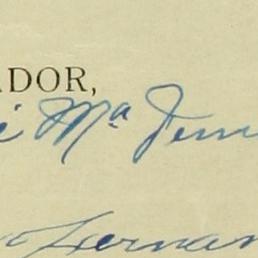 ADOR,
i Mª Fern
o Hernan